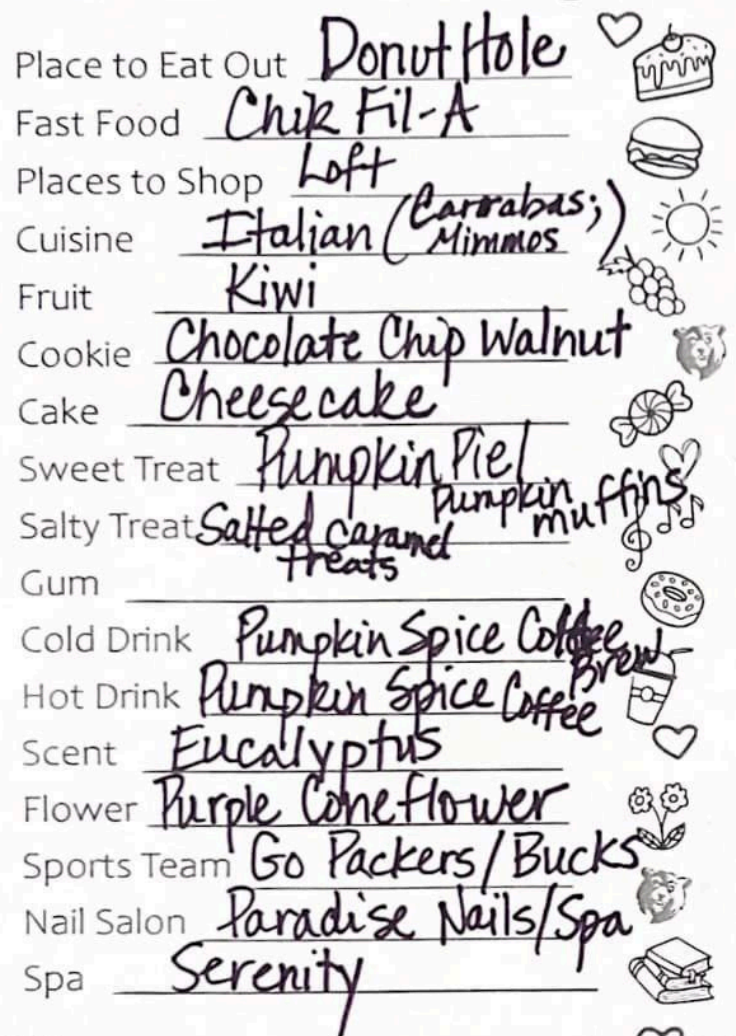 Place to Eat Out Donut Hole
Fast Food Chik Fil-A
Places to Shop Loft
Cuisine Italian (Carrabas; Mimmos)
Fruit Kiwi
Cookie Chocolate Chip Walnut
Cake Cheesecake
Sweet Treat Pumpkin Pie/ Pumpkin muffins
Salty Treat Salted caramel treats
Gum
Cold Drink Pumpkin Spice Coffee Brew
Hot Drink Pumpkin Spice Coffee
Scent Eucalyptus
Flower Purple Coneflower
Sports Team Go Packers/Bucks
Nail Salon Paradise Nails/Spa
Spa Serenity